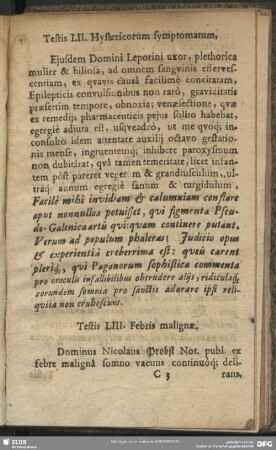 Testis LII. Hystericorum symptomatum.
Ejusdem Domini Leporini uxor, plethorica
mulier & biliosa, ad omnem sangvinis efferves-
centiam, ex qvavis causâ facillimè concitatam,
Epilepticis convulsionibus non rarò, graviditatis
præsertim tempore, obnoxia; venæsectione, qvæ
ex remediis pharmaceuticis pejus solito habebat,
egregiè adjuta est, usqveadeò, ut me qvoq; in-
consulto idem attentare auxilij octavo gestatio-
nis mense, ingruentemq; inhibere paroxysmum
non dubitârat, qvâ tamen temeritate, licet infan-
tem pòst pareret & grandiusculum, ul-
traq; annum egregiè sanum & turgidulum,
Facilè mihi invidiam & calumniam conflare
aput nonnullos potuisset, qvi figmenta Pseu-
do-Galenica artû qviqvam continere putant.
Verum ad populum phaleras! Judicio opus
& experientiâ creberrima est: qvêu carent
pleriq;, qvi Paganorum sophistica commenta
pro oraculis infallibilibus obtrudere alijs, ridiculaq;
eorundem somnia pro sanctis adorare ipsi reli-
qviia non erubescunt.
Testis LIII. Febris malignæ.
Dominus Nicolaus Probst Not. publ. ex
febre malignâ somno vacuus continuòq; deli-
C 3 rans,
SLUB